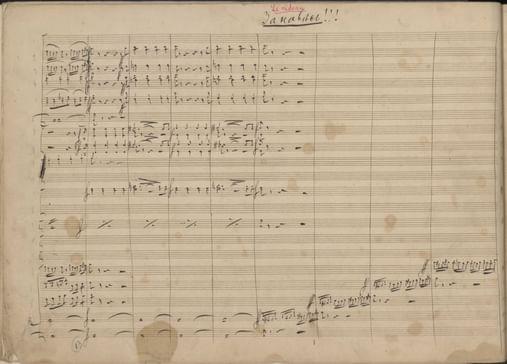 Le rideau
Занавѣсъ!!!